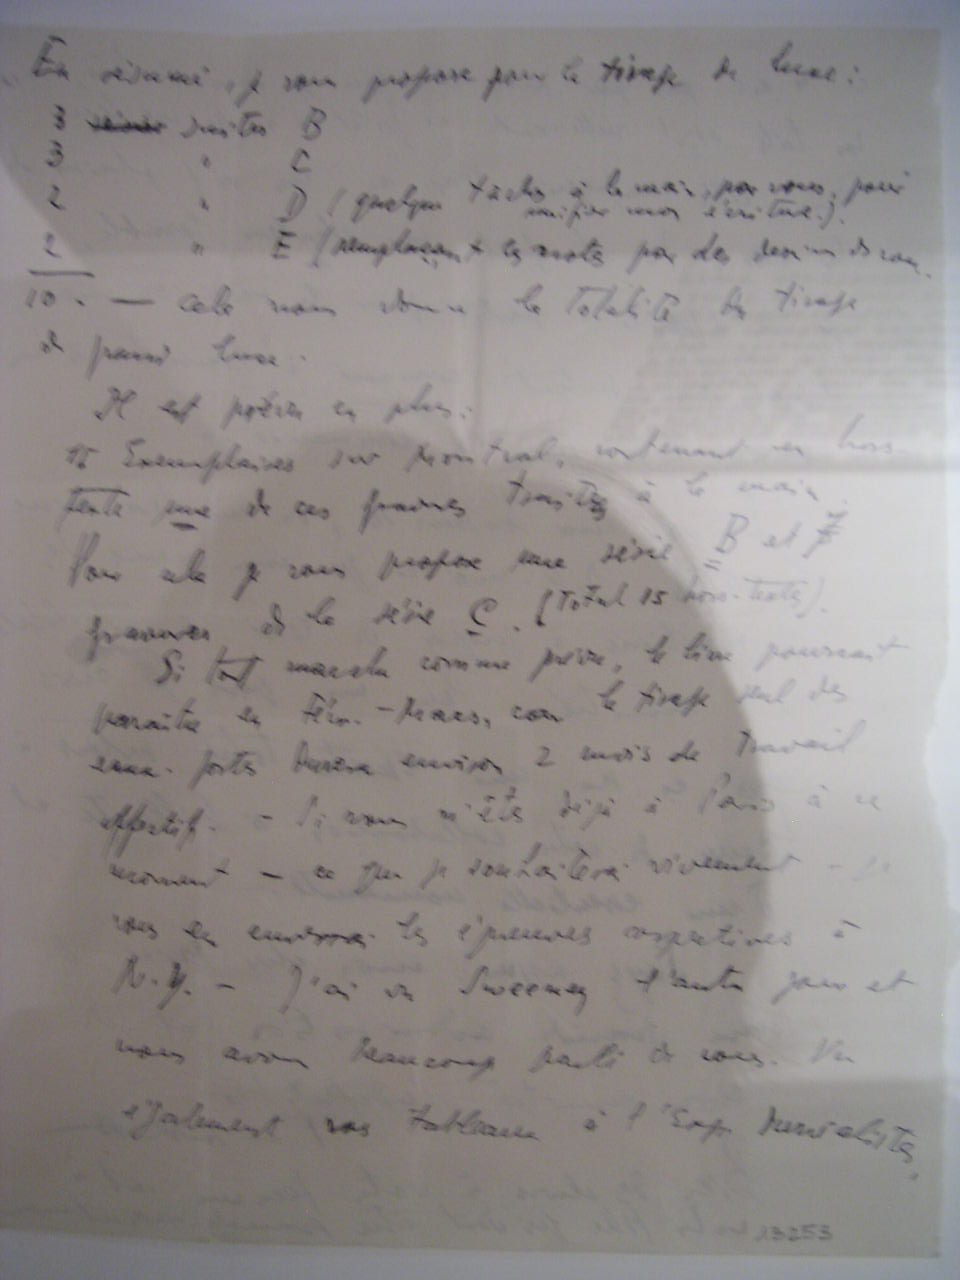 En résumé, je vous propose pour le tirage de luxe :
3 suites B
3 " C
2 " D (quelques taches à la main, par vous, pour
unifier mon écriture).
2 " E (remplaçant les mots par des dessins de vous.
10. — cela nous donne la totalité du tirage
de grand luxe.
Il est prévu en plus :
15 Exemplaires sur Montval, contenant en hors-
texte une de ces gravures à la main.
Pour cela je vous propose une série B et 7
gravures de la série C. (Total 15 hors-textes).
Si tout marche comme prévu, le livre pourrait
paraître en Févr. - Mars, car le tirage seul des
durera environ 2 mois de travail
effectif. - Si vous n'êtes déjà à Paris à ce
moment - ce que je souhaiterai vivement - je
vous en enverrai les épreuves respectives à
N.Y. - J'ai vu Sweeney l'autre jour et
nous avons beaucoup parlé de vous. Vu
également vos tableaux à l'Exp. Surréalistes,
13253